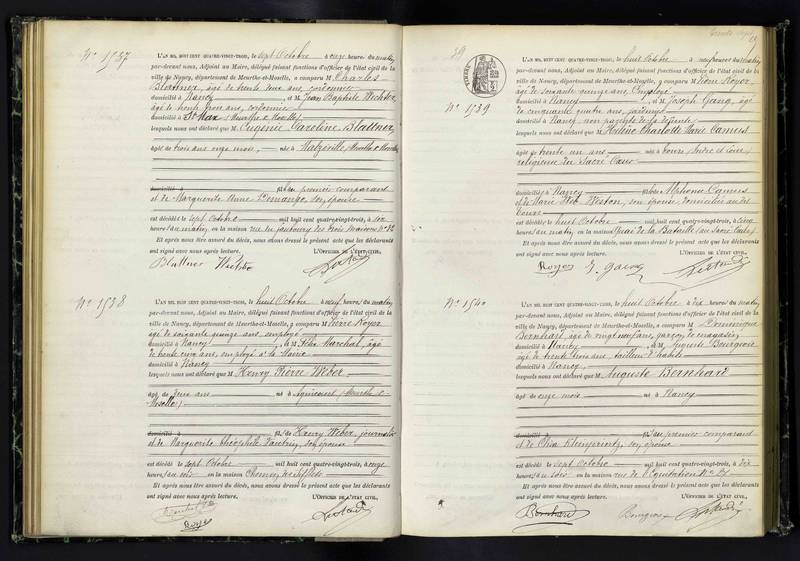 N° 1537
L'AN MIL HUIT CENT QUATRE-VINGT-TROIS, le sept Octobre à onze heures du matin,
par-devant nous, Adjoint au Maire, délégué faisant fonctions d'officier de l'état civil de la
ville de Nancy, département de Meurthe-et-Moselle, a comparu M Charles
Blattner, âgé de trente deux ans, cordonnier
domicilié à Nancy, & M Jean Baptiste
âgé de trente trois ans, cordonnier
domicilié à St Max (Meurthe & Moselle)
lesquels nous ont déclaré que M Eugénie Caroline Blattner,
âgée de trois ans onze mois, née à Malzéville, Meurthe & Moselle
domicilié à fille du premier comparant
et de Marguerite Anne son épouse
est décédée le sept Octobre mil huit cent quatre-vingt-trois, à six
heures du matin, en la maison rue du faubourg des trois maisons N° 82
Et après nous être assuré du décès, nous avons dressé le présent acte que les déclarants
ont signé avec nous après lecture. L'OFFICIER DE L'ÉTAT CIVIL,
Blattner
N° 1538
L'AN MIL HUIT CENT QUATRE-VINGT-TROIS, le huit Octobre à neuf heures du matin,
par-devant nous, Adjoint au Maire, délégué faisant fonctions d'officier de l'état civil de la
ville de Nancy, département de Meurthe-et-Moselle, a comparu M Pierre Royer
âgé de soixante quinze ans, employé
domicilié à Nancy, & M Félix Marchal, âgé
de trente cinq ans, employé à la Mairie
domicilié à Nancy
lesquels nous ont déclaré que M Henry Pierre Weber
âgé de deux ans né à Agincourt (Meurthe &
Moselle)
domicilié à fils de Henry Weber, journalier
et de Marguerite Théophile son épouse
est décédé le sept Octobre mil huit cent quatre-vingt-trois, à onze
heures du soir en la maison
Et après nous être assuré du décès, nous avons dressé le présent acte que les déclarants
ont signé avec nous après lecture. L'OFFICIER DE L'ÉTAT CIVIL,
Royer
39
N° 1539
L'AN MIL HUIT CENT QUATRE-VINGT-TROIS, le huit Octobre à neuf heures du matin,
par-devant nous, Adjoint au Maire, délégué faisant fonctions d'officier de l'état civil de la
ville de Nancy, département de Meurthe-et-Moselle, a comparu M Pierre Royer
âgé de soixante quinze ans, Employé
domicilié à Nancy, & M Joseph
de cinquante quatre ans, jardinier
domicilié à Nancy non parents de la défunte
lesquels nous ont déclaré que M Hélène Charlotte Marie Camus
âgée de trente un ans née à Tours (Indre et Loire)
religieuse du Sacré Cœur
domiciliée à Nancy fille de Alphonse Camus
et de Marie Weston, son épouse, domiciliés au dit
Tours
est décédée le huit Octobre mil huit cent quatre-vingt-trois, à cinq
heures du matin, en la maison Quai de la Bataille (au Sacré Cœur)
Et après nous être assuré du décès, nous avons dressé le présent acte que les déclarants
ont signé avec nous après lecture. L'OFFICIER DE L'ÉTAT CIVIL,
Royer
N° 1540
L'AN MIL HUIT CENT QUATRE-VINGT-TROIS, le huit Octobre à dix heures du matin,
par-devant nous, Adjoint au Maire, délégué faisant fonctions d'officier de l'état civil de la
ville de Nancy, département de Meurthe-et-Moselle, a comparu M Dominique
Bernhard, âgé de vingt neuf ans, garçon de magasin
domicilié à Nancy, & M Auguste Bourgeois
âgé de trente trois ans, tailleur d'habits
domicilié à Nancy,
lesquels nous ont déclaré que M Auguste Bernhard
âgé de onze mois né à Nancy
domicilié à fils du premier comparant
et de son épouse
est décédé le sept Octobre mil huit cent quatre-vingt-trois, à dix
heures du soir, en la maison rue de l'Equitation N°
Et après nous être assuré du décès, nous avons dressé le présent acte que les déclarants
ont signé avec nous après lecture. L'OFFICIER DE L'ÉTAT CIVIL,
Bernhard Bourgeois